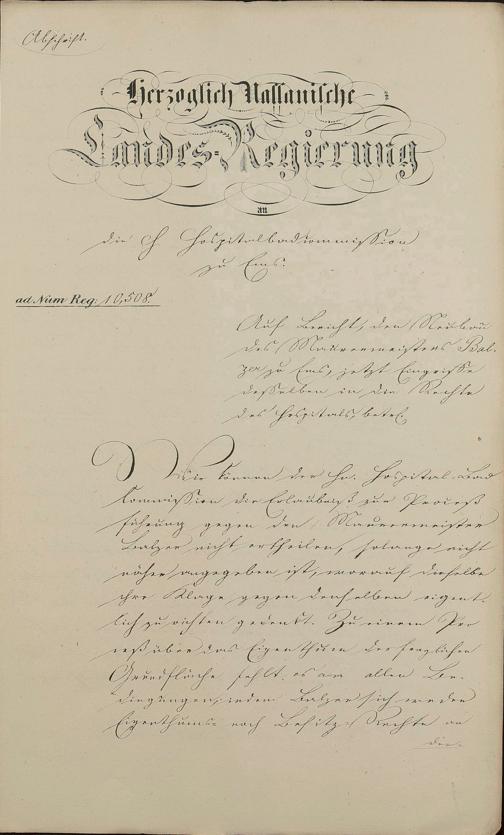 Abschrift.
Herzoglich Nassauische
Landes-Regierung
an
die H Hospitalbadcommission
zu Ems.
ad Num Reg. 10,508.
Auf Bericht, den Neubau
des Maurermeisters Bal-
zer zu Ems, jetzt Eingriffe
desselben in die Rechte
des Hospitals, betr.
Wir können der Hr. Hospital-Bad
Commission die Erlaubniß zur Proceß
führung gegen den Maurermeister
Balzer nicht ertheilen, solange nicht
näher angegeben ist, worauf dieselbe
ihre Klage gegen denselben eigent-
lich zu richten gedenkt. Zu einem Pro
ceß über das Eigenthum der fraglichen
Grundfläche fehlt es an allen Be-
dingungen, indem Balzer sich weder
Eigenthums- noch Besitz-Rechte an
der